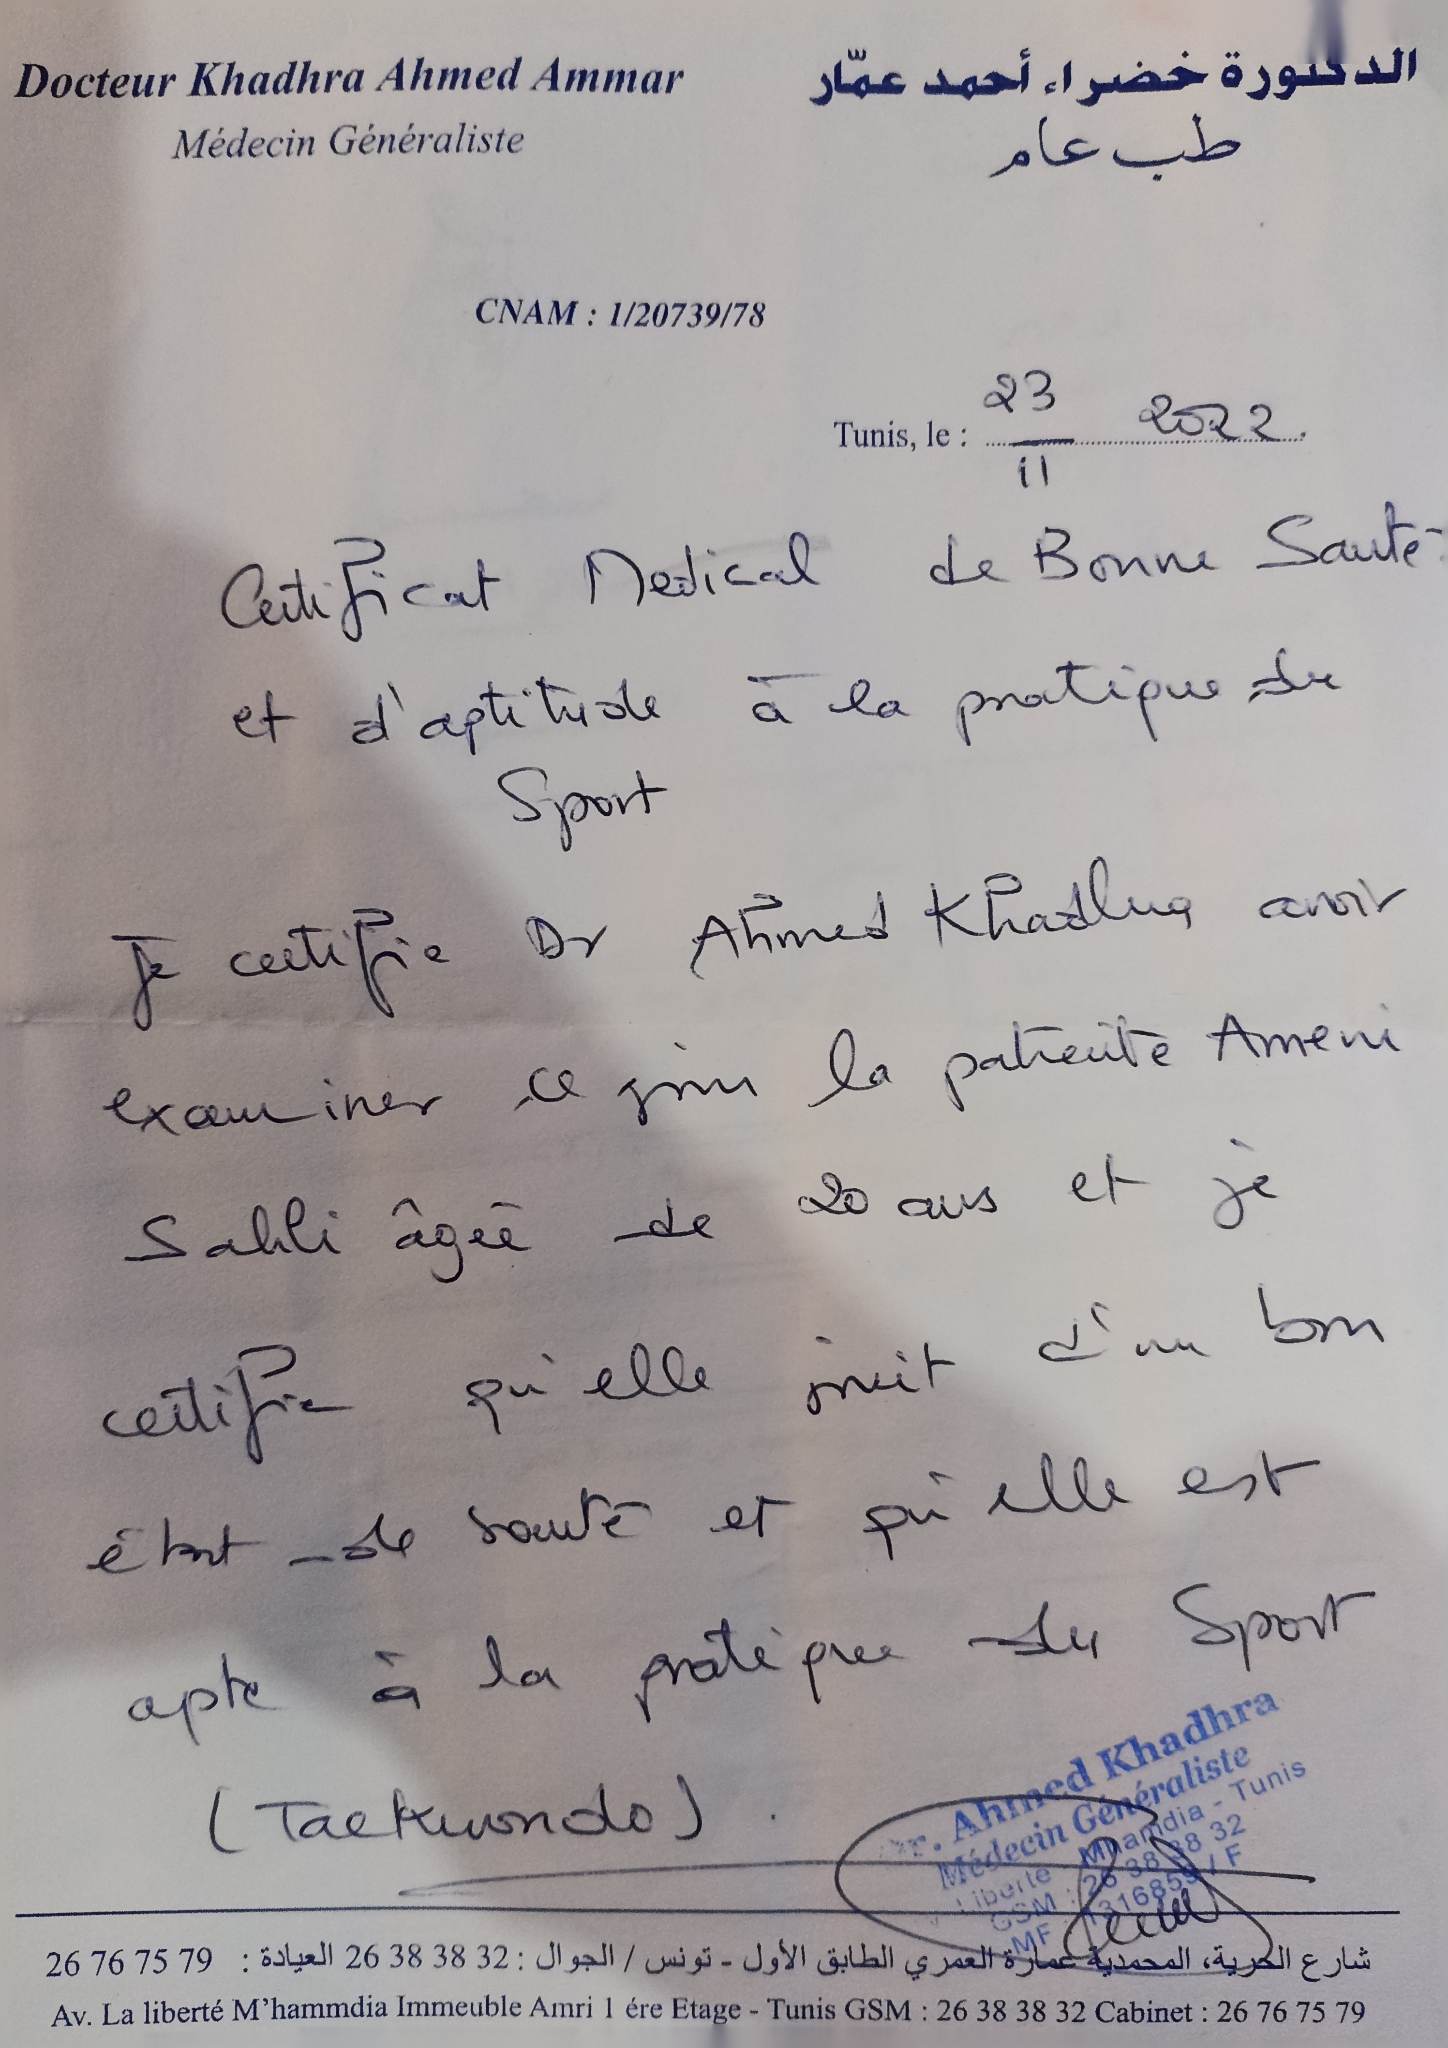 Docteur Khadhra Ahmed Ammar
الدكتورة خضراء أحمد عمّار
Médecin Généraliste
طب عام
CNAM : 1/20739/78
Tunis, le : 23/11 2022
Certificat Medical de Bonne Santé
et d'aptitude à la pratique du
Sport
Je certifie Dr Ahmed Khadhra avoir
examiner ce jour la patiente Ameni
Sahli âgée de 20 ans et je
certifie qu'elle jouit d'un bon
état de santé et qu'elle est
apte à la pratique du Sport
(Taekwondo).
Dr. Ahmed Khadhra
Médecin Généraliste
Liberté Mhamdia - Tunis
GSM : 26 38 38 32
MF : 1316859 / F
شارع الحرية، المحمدية عمارة العمري الطابق الأول - تونس / الجوال : 32 38 38 26 العيادة : 79 75 76 26
Av. La liberté M'hammdia Immeuble Amri 1 ére Etage - Tunis GSM : 26 38 38 32 Cabinet : 26 76 75 79